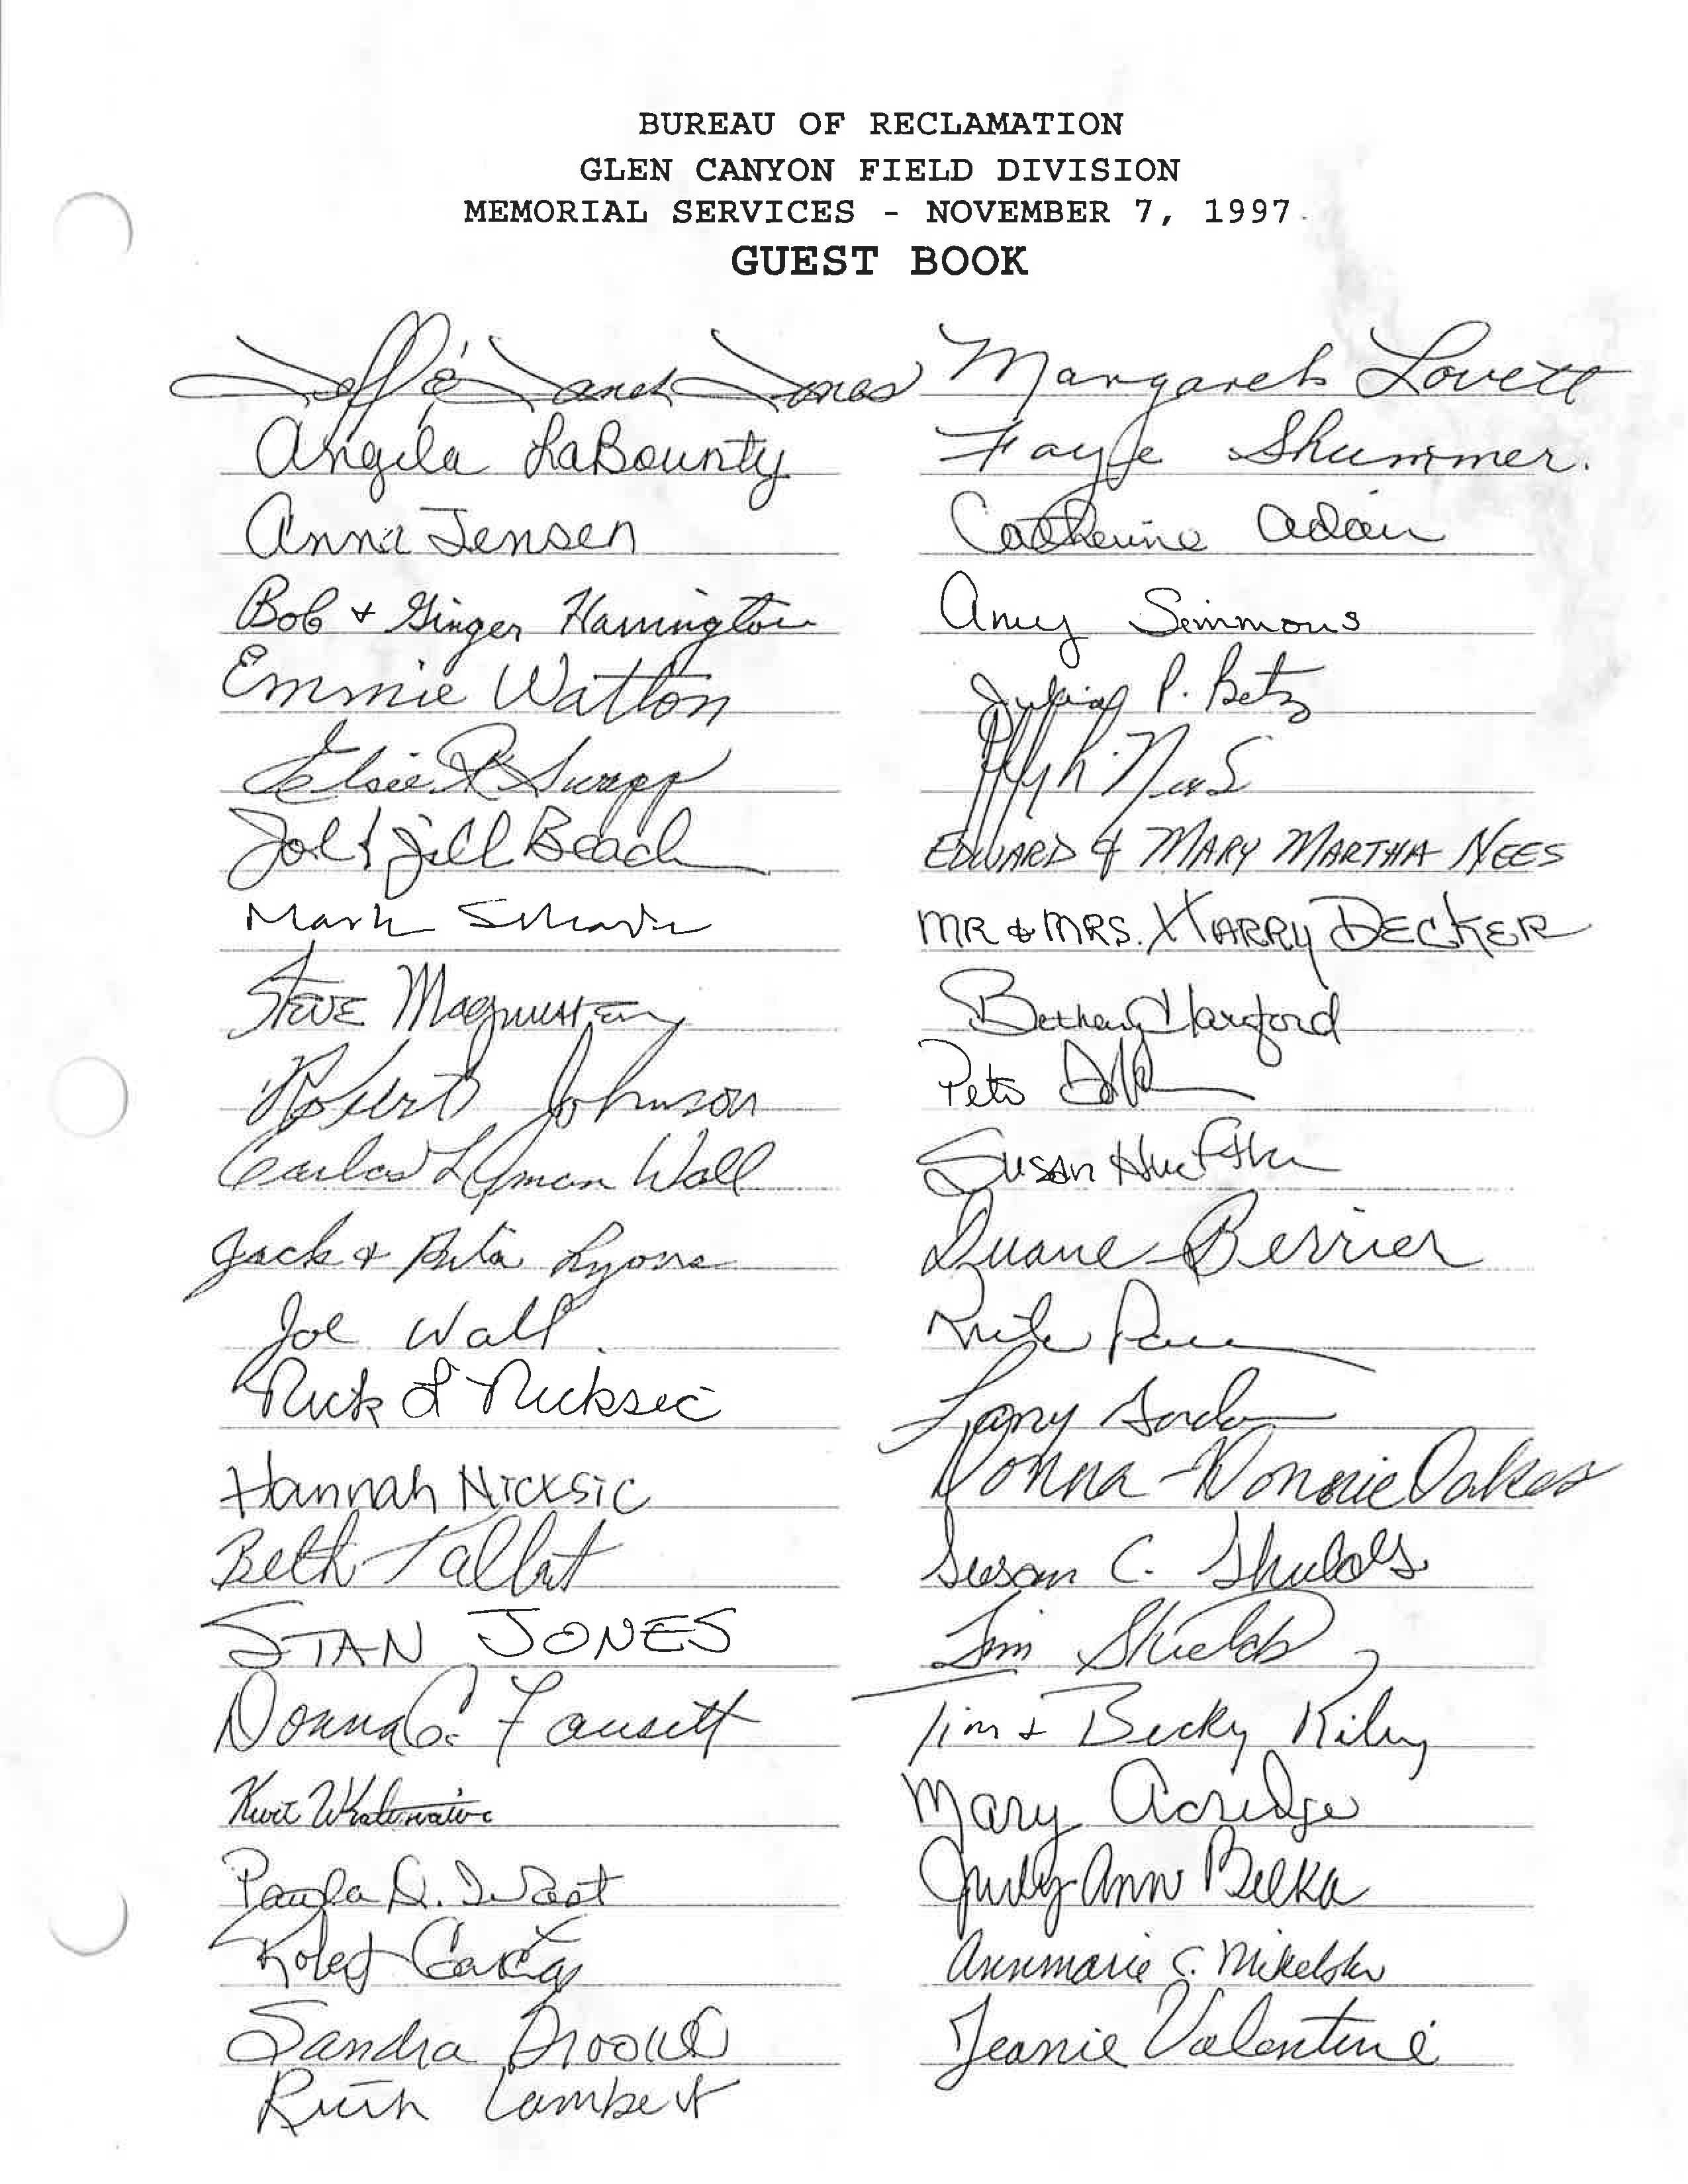 BUREAU OF RECLAMATION
GLEN CANYON FIELD DIVISION
MEMORIAL SERVICES - NOVEMBER 7, 1997
GUEST BOOK
Jeff & Janet Jones
Angela LaBounty
Anna Jensen
Bob + Ginger Harrington
Emmie Watton
Elsie P Swapp
Joe & Jill Beach
Mark
Steve
Robert Johnson
Carlos Lyman Wall
Jack & Rita Lyons
Joe Wall
Nick L Nicksic
Hannah Nicksic
Beth Talbot
STAN JONES
Donna G. Fausett
Kurt
Paula D. West
Sandra Brooks
Ruth Lambert
Margaret Lovett
Faye Shummer.
Catherine Adair
Amy Simmons
P. Betz
Nees
EDWARD & MARY MARTHA NEES
MR & MRS. HARRY DECKER
Bethany Hanford
Pete
Susan
Duane Berrier
Larry
Donna - Wonnie Oakes
Susan C. Shields
Jim Shields
Tim & Becky Riley
Mary Acridge
Judy Ann Belka
Annmarie C.
Jeanie Valentine